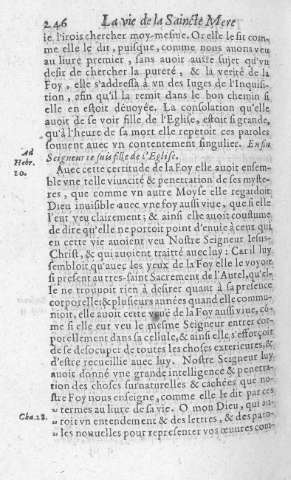 246 La vie de la Saincte Mere
ie, l'irois chercher moy-mesme. Or elle le fit com-
me elle le dit, puisque, comme nous auons veu
au liure premier, sans auoir autre sujet qu'vn
desir de chercher la pureté, & la verité de la
Foy, elle s'addressa à vn des Iuges de l'Inquisi-
tion, afin qu'il la remit dans le bon chemin si
elle en estoit déuoyée. La consolation qu'elle
auoit de se voir fille de l'Eglise, estoit si grande,
qu'à l'heure de sa mort elle repetoit ces paroles
souuent auec vn contentement singulier. Enfin
Seigneur ie suis fille de l'Eglise.
Ad
Hebr.
20.
Auec cette certitude de la Foy elle auoit ensem-
ble vne telle viuacité & penetration de ses myste-
res, que comme vn autre Moyse elle regardoit
Dieu inuisible auec vne foy aussi viue, que si elle
l'eut veu clairement; & ainsi elle auoit coustume
de dire qu'elle ne portoit point d'enuie à ceux qui
en cette vie auoient veu Nostre Seigneur Iesus-
Christ, & qui auoient traitté auec luy: Car il luy
sembloit qu'auec les yeux de la Foy elle le voyoit
si present au tres-saint Sacrement de l'Autel, qu'el-
le ne trouuoit rien à desirer quant à sa presence
corporelle: & plusieurs années quand elle commu-
nioit, elle auoit cette verité de la Foy aussi viue, cõ-
me si elle eut veu le mesme Seigneur entrer cor-
porellement dans sa cellule, & ainsi elle s'efforçoit
de se desoccuper de toutes les choses exterieures, &
d'estre recueillie auec luy. Nostre Seigneur luy
auoit donné vne grande intelligence & penetra-
tion des choses surnaturelles & cachées que no-
stre Foy nous enseigne, comme elle le dit par ces
Cha. 28.
„ termes au liure de sa vie. O mon Dieu, qui au-
„ roit vn entendement & des lettres, & des paro-
„ les nouuelles pour representer vos œuures com-